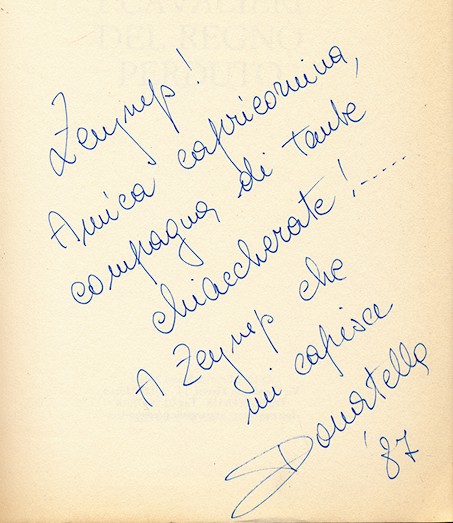 I CAVALIERI
DEL REGNO
PERDUTO
Zeynep!
Amica capricornina,
compagna di tante
chiaccherate!.....
A Zeynep che
mi capisce
Donatella
'87